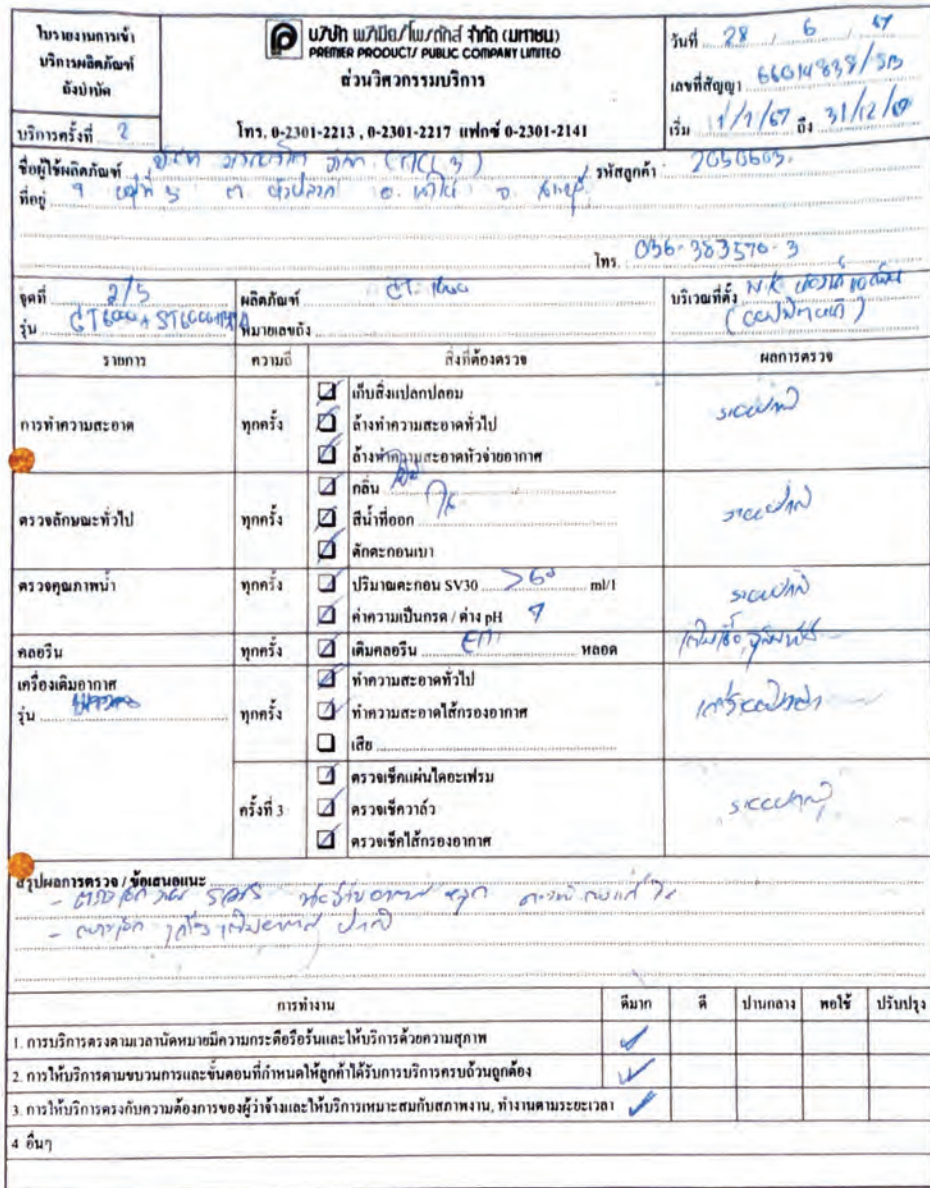 ใบรายงานการเข้า
บริการผลิตภัณฑ์
ถังบำบัด
บริการครั้งที่ 2
บริษัท พรีเมียร์โพรดักส์ จำกัด (มหาชน)
PREMIER PRODUCTS PUBLIC COMPANY LIMITED
ส่วนวิศวกรรมบริการ
โทร. 0-2301-2213 , 0-2301-2217 แฟกซ์ 0-2301-2141
วันที่ 28 / 6 / 67
เลขที่สัญญา 66014838/SB
เริ่ม 1/1/67 ถึง 31/12/67
ชื่อผู้ใช้ผลิตภัณฑ์ บริษัท
รหัสลูกค้า 2050603
ที่อยู่ 9 หมู่ที่ 5 ต.
โทร. 036-383570-3
จุดที่ 2/5
รุ่น GT6000+ST6000
ผลิตภัณฑ์
หมายเลขถัง
บริเวณที่ตั้ง N.K
รายการ ความถี่ สิ่งที่ต้องตรวจ ผลการตรวจ
การทำความสะอาด ทุกครั้ง
เก็บสิ่งแปลกปลอม
ล้างทำความสะอาดทั่วไป
ล้างทำความสะอาดหัวจ่ายอากาศ
ระบบปกติ
ตรวจลักษณะทั่วไป ทุกครั้ง
กลิ่น
สีน้ำที่ออก ใส
ดักตะกอนเบา
ระบบปกติ
ตรวจคุณภาพน้ำ ทุกครั้ง
ปริมาณตะกอน SV30 >60 ml/l
ค่าความเป็นกรด / ด่าง pH 7
ระบบปกติ
คลอรีน ทุกครั้ง เติมคลอรีน EM หลอด เติมเชื้อจุลินทรีย์
เครื่องเติมอากาศ
รุ่น
ทุกครั้ง
ทำความสะอาดทั่วไป
ทำความสะอาดไส้กรองอากาศ
เสีย
ครั้งที่ 3
ตรวจเช็คแผ่นไดอะเฟรม
ตรวจเช็ควาล์ว
ตรวจเช็คไส้กรองอากาศ
ระบบปกติ
สรุปผลการตรวจ / ข้อเสนอแนะ
การทำงาน ดีมาก ดี ปานกลาง พอใช้ ปรับปรุง
1. การบริการตรงตามเวลานัดหมายมีความกระตือรือร้นและให้บริการด้วยความสุภาพ
2. การให้บริการตามขบวนการและขั้นตอนที่กำหนดให้ลูกค้าได้รับการบริการครบถ้วนถูกต้อง
3. การให้บริการตรงกับความต้องการของผู้ว่าจ้างและให้บริการเหมาะสมกับสภาพงาน, ทำงานตามระยะเวลา
4 อื่นๆ